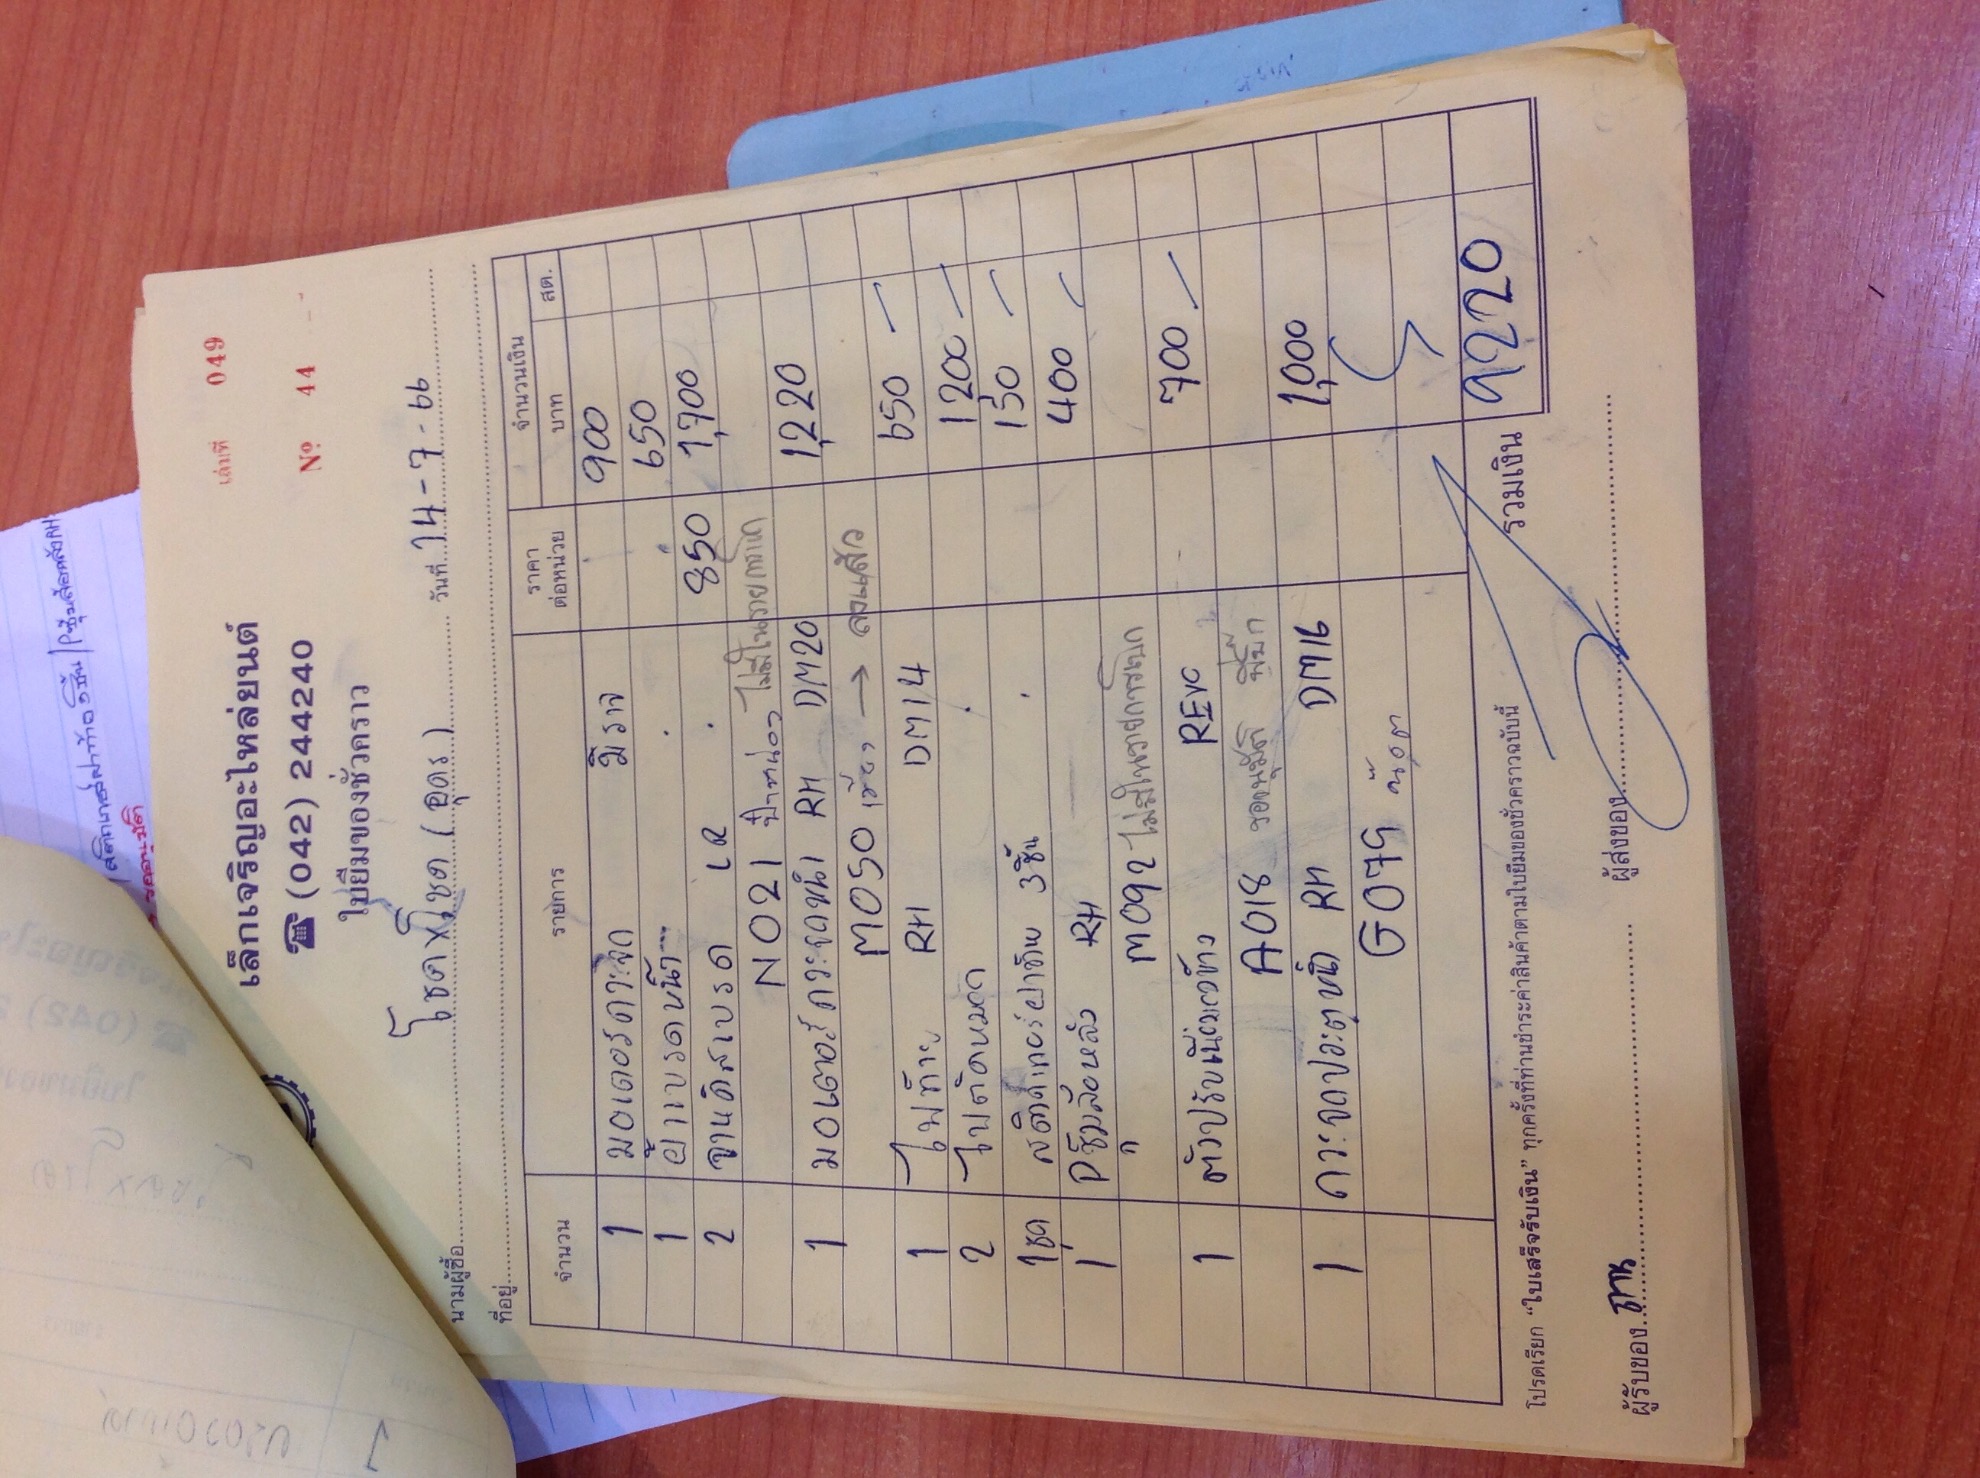 เล่มที่ 049
เล็กเจริญอะไหล่ยนต์
☎ (042) 244240
Nº 44
ใบยืมของชั่วคราว
นามผู้ซื้อ โชคxโชค (อุดร) วันที่ 14-7-66
ที่อยู่
จำนวน รายการ ราคาต่อหน่วย จำนวนเงิน
บาท สต.
1 มอเตอร์กระจก มิราจ 900
1 ผ้าเบรคหน้า 650
2 จานดิสเบรค LR 850 1,700
N021 ป๋าหน่อง ไม่มีในรายการเบิก
1 มอเตอร์กระจกหน้า RH DM20 1,220
M050 → ลงแล้ว
1 ไฟท้าย RH DM14 650 -
2 ไฟตัดหมอก 1200 -
1ชุด สติกเกอร์ฝาท้าย 3ชิ้น 150 -
1 คิ้วล้อหลัง RH 400 -
M092 ไม่มีในรายการเบิก
1 REVO 700 -
A018 รออนุมัติ พี่บิ๊ก
1 กระจกประตูหน้า RH DM16 1,000
G079 น๊อต
รวมเงิน 9220
โปรดเรียก "ใบเสร็จรับเงิน" ทุกครั้งที่ท่านชำระค่าสินค้าตามใบยืมของชั่วคราวฉบับนี้
ผู้รับของ ผู้ส่งของ